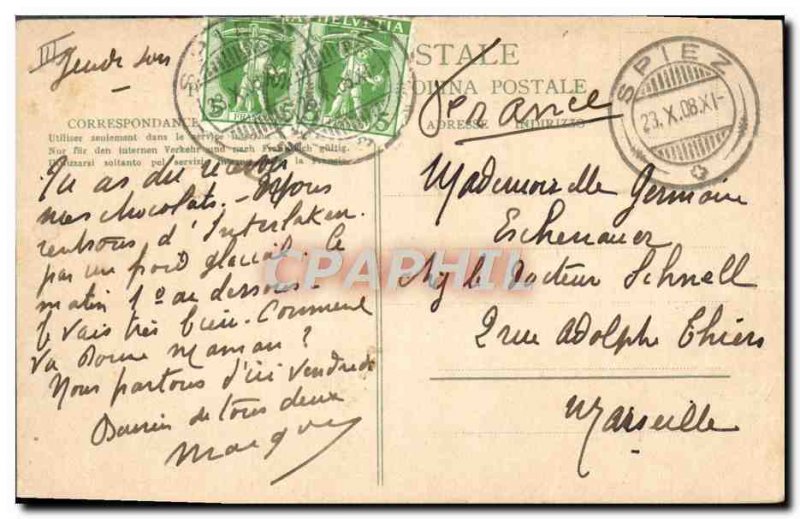 III
Jeudi soir
HELVETIA
STALE
POSTALE
CORRESPONDANCE
ADRESSE INDIRIZZO
Utiliser seulement dans le service
Nur für den internen Verkehr und nach Frankreich gültig.
soltanto pel servizio la Francia
SPIEZ
23.X.08.XI-
France
Tu as dû recevoir
mes chocolats. Nous
rentrons d'Interlaken
par un froid glacial. Ce
matin 1° au dessous.
Je vais très bien. Comment
va Bonne Maman ?
Nous partons d'ici vendredi
de tous deux
Mademoiselle Germaine
Eschenauer
le Docteur Schnell
2 rue Adolphe Thiers
Marseille
CPAPHIL